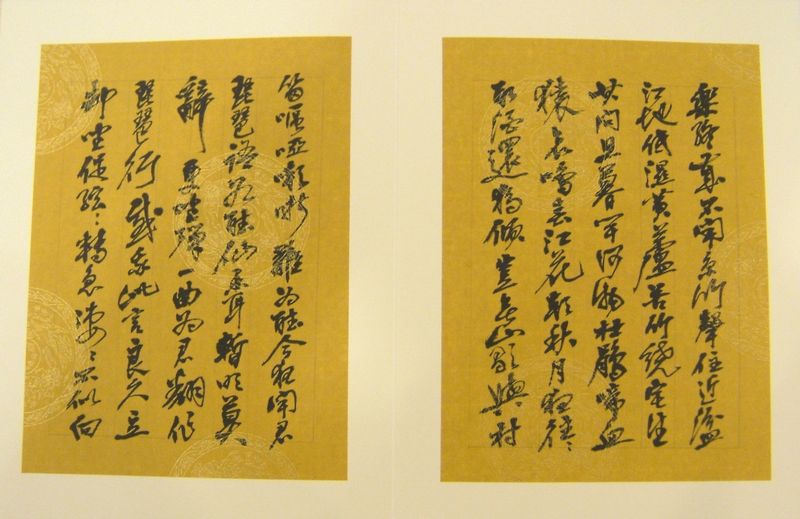 樂終歲不聞絲竹聲住近湓
江地低濕黃蘆苦竹繞宅生
其間旦暮聞何物杜鵑啼血
猿哀鳴春江花朝秋月夜往〻
取酒還獨傾豈無山歌與村
笛嘔啞嘲哳難為聽今夜聞君
琵琶語如聽仙樂耳暫明莫
辭更坐彈一曲為君翻作
琵琶行感我此言良久立
卻坐促弦〻轉急淒〻不似向